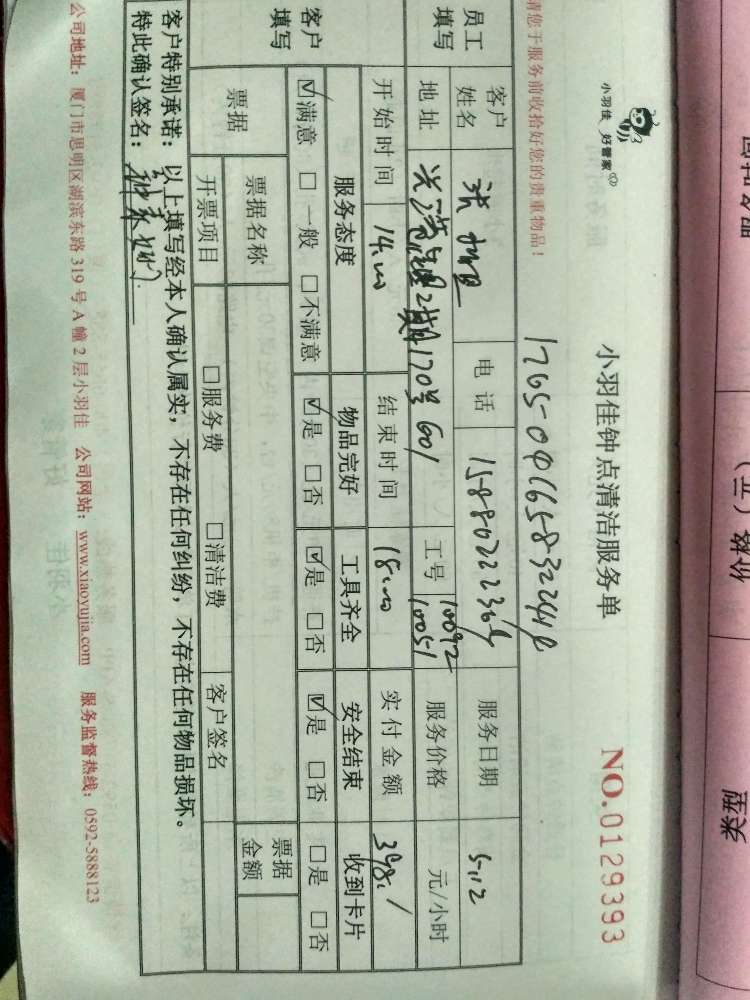 小羽佳 好管家
小羽佳钟点清洁服务单
NO.0129393
请您于服务前收拾好您的贵重物品！
员工填写
客户姓名
电话
服务日期 5.12
地址 2期170号601
工号 10092 10051
服务价格 元/小时
开始时间 14:00
结束时间 18:00
实付金额 398.
客户填写
服务态度 物品完好 工具齐全 安全结束 收到卡片
☑满意 □一般 □不满意 ☑是 □否 ☑是 □否 ☑是 □否 □是 □否
票据
票据名称
票据金额
开票项目 □服务费 □清洁费 客户签名
客户特别承诺：以上填写经本人确认属实，不存在任何纠纷，不存在任何物品损坏。
特此确认签名：
公司地址：厦门市思明区湖滨东路319号A幢2层小羽佳 公司网站：www.xiaoyujia.com 服务监督热线：0592-5888123
价格（兰）
类型